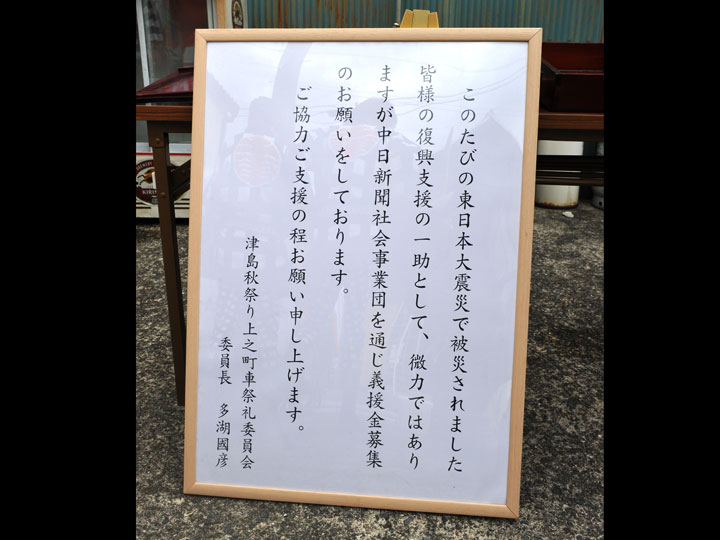 このたびの東日本大震災で被災されました
皆様の復興支援の一助として、微力ではあり
ますが中日新聞社会事業団を通じ義援金募集
のお願いをしております。
ご協力ご支援の程お願い申し上げます。
津島秋祭り上之町車祭礼委員会
委員長 多湖國彦
KIRIN